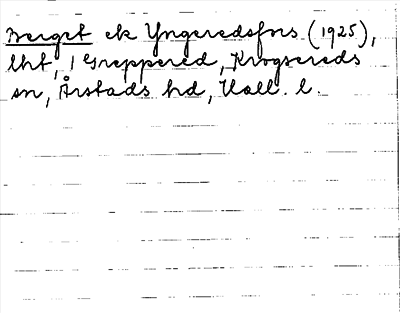 Berget ek Yngeredsfors (1925),
lht, 1 Greppered, Krogsereds
sn, Årstads hd, Hall. l.